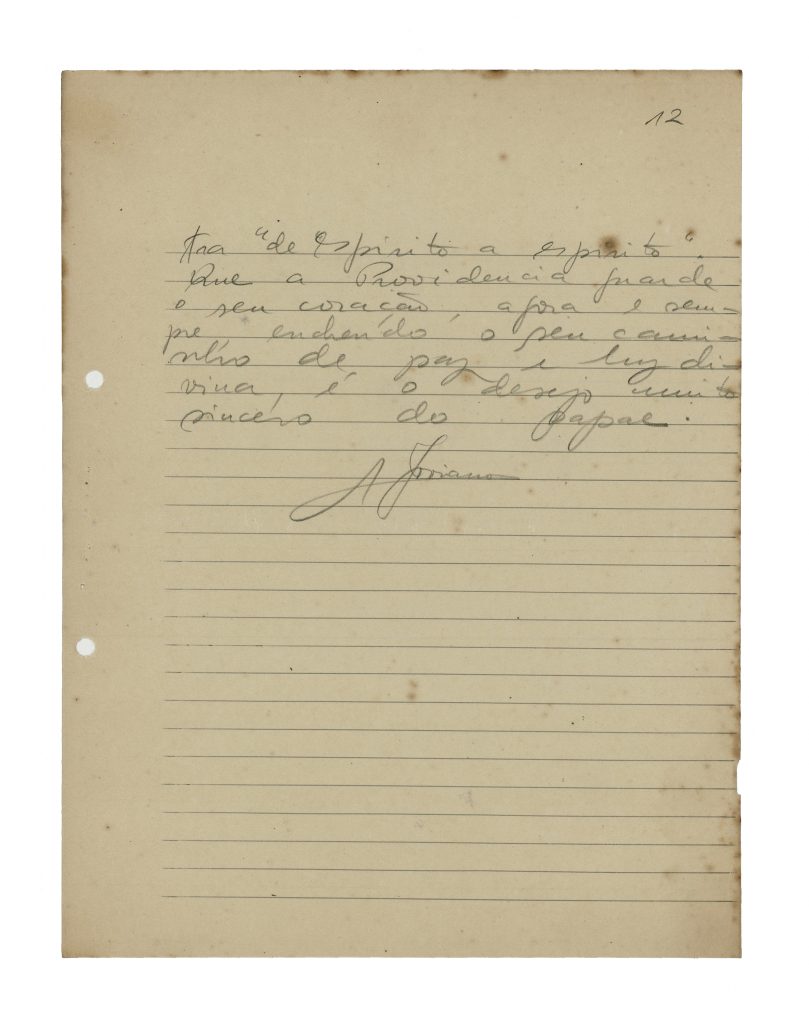 12
tra "de espirito a espirito".
Que a Providencia guarde
o seu coração, agora e sem-
pre enchendo o seu cami-
nho de paz e luz di-
vina, é o desejo muito
sincero do papae.
A Joviano